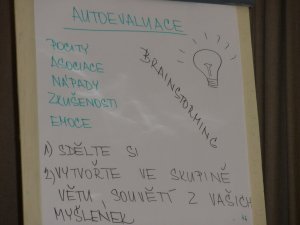 AUTOEVALUACE
POCITY
ASOCIACE
NÁPADY
ZKUŠENOSTI
EMOCE
BRAINSTORMING
1) SDĚLTE SI
2) VYTVOŘTE VE SKUPINĚ
VĚTU, SOUVĚTÍ Z VAŠICH
MYŠLENEK